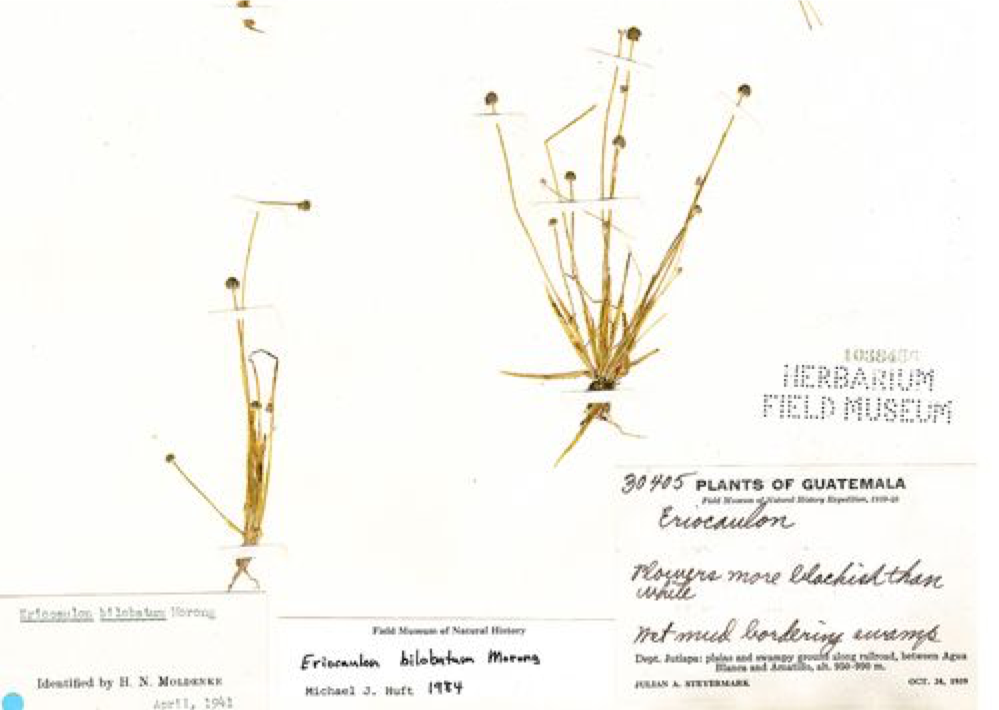 HERBARIUM
FIELD MUSEUM
30405 PLANTS OF GUATEMALA
Field Museum of Natural History Expedition, 1939-40
Eriocaulon
Flowers more blackish than
white
Wet mud bordering swamps
Dept. Jutiapa: plains and swampy ground along railroad, between Agua
Blanca and Amatillo, alt. 950-990 m.
JULIAN A. STEYERMARK OCT. 24, 1939
Eriocaulon bilobatum Morong
Identified by H. N. MOLDENKE
April, 1941
Field Museum of Natural History
Eriocaulon bilobatum Morong
Michael J. Huft 1984